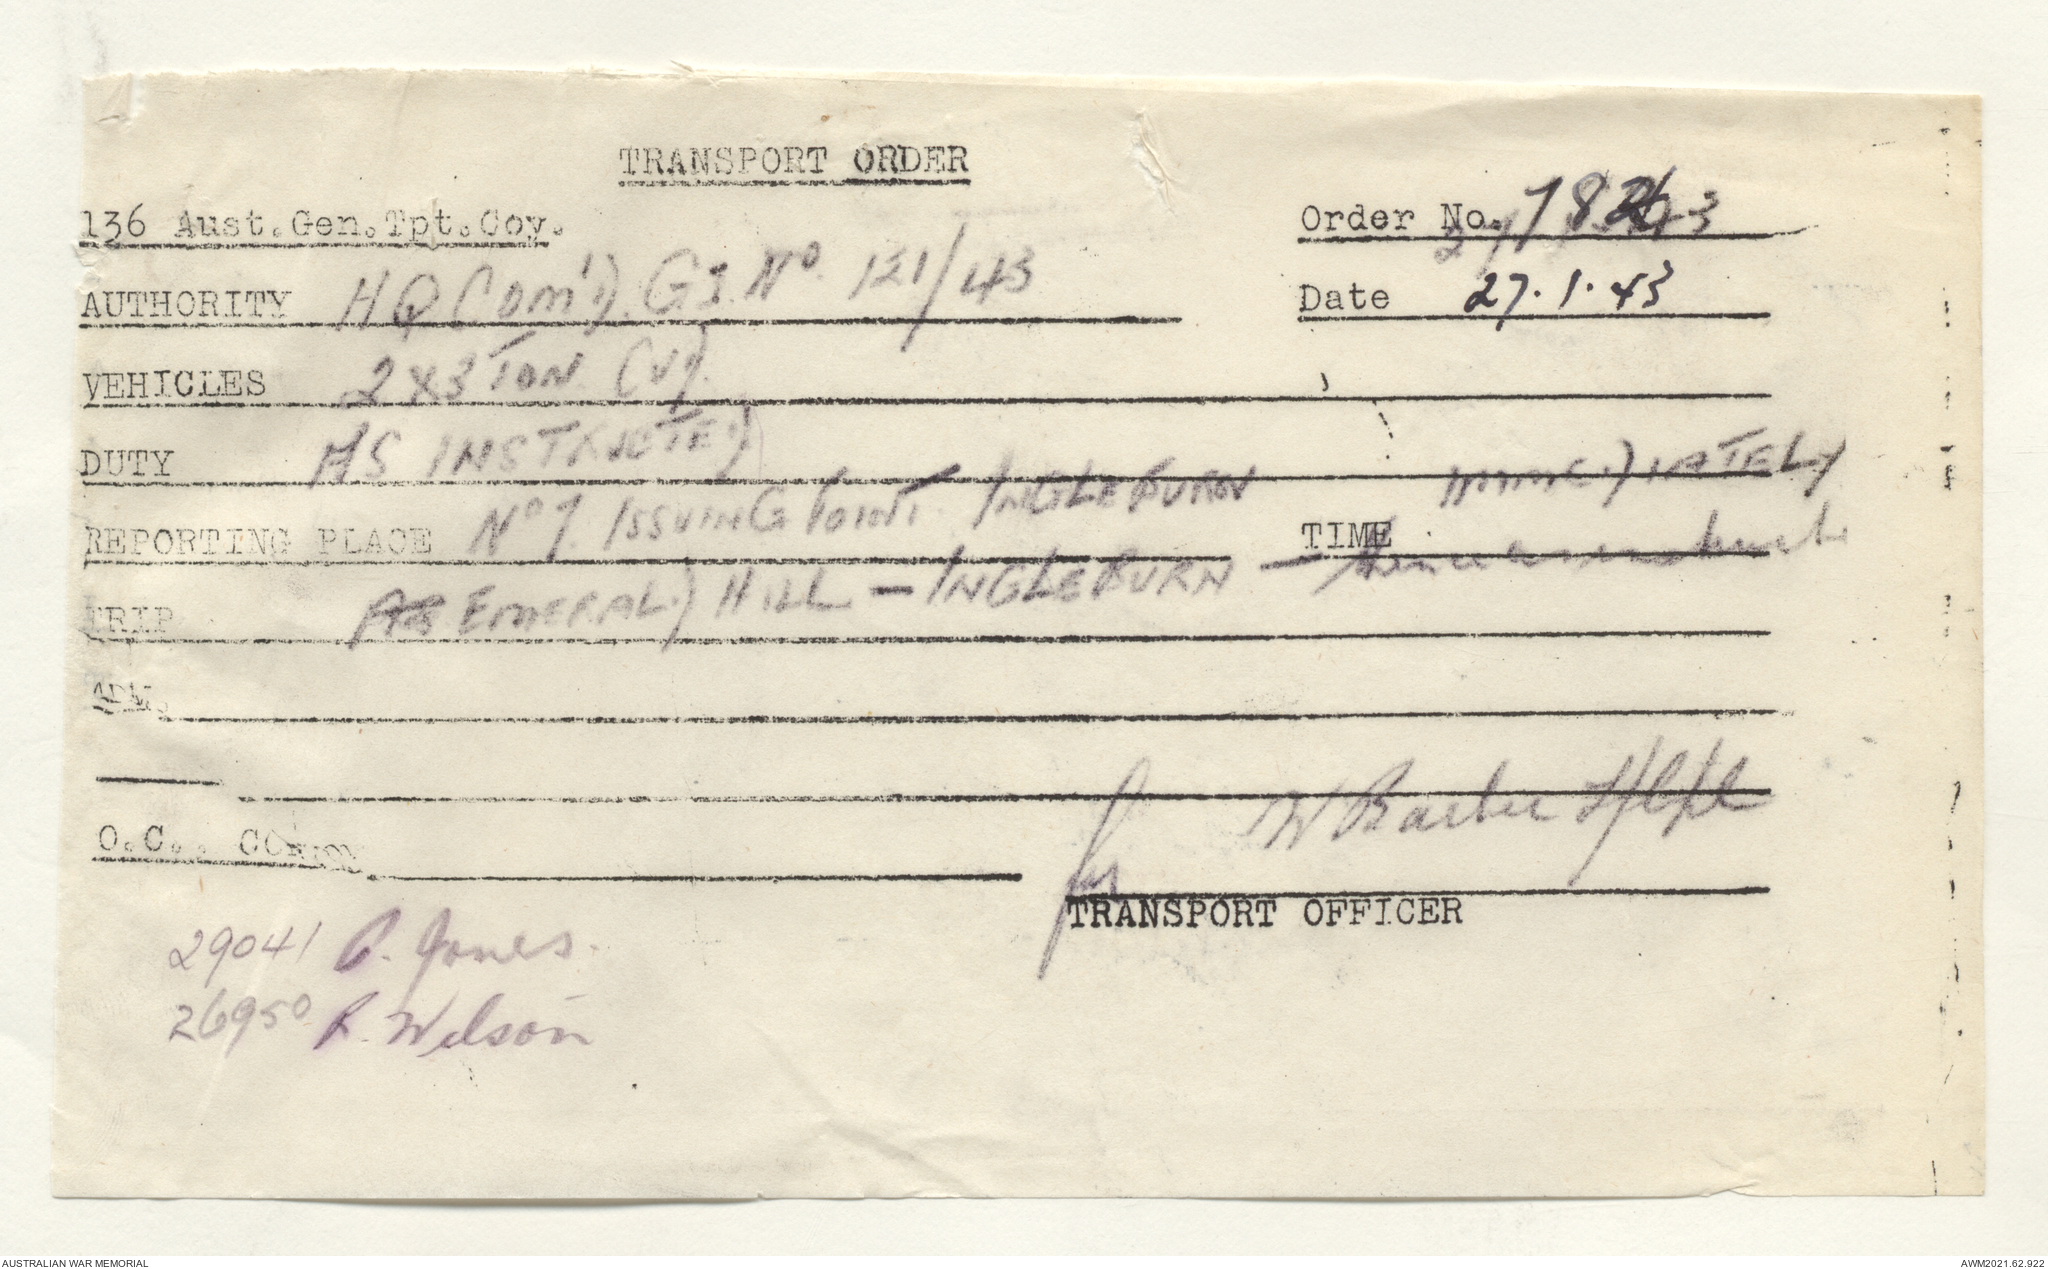 TRANSPORT ORDER
136 Aust.Gen.Tpt.Coy.
Order No.
AUTHORITY HQ Com'd. G3. No. 121/43
Date 27.1.43
VEHICLES 2 x 3 TON (V).
DUTY AS INSTRUCTED
REPORTING PLACE No 7. ISSUING POINT. INGLEBURN TIME IMMEDIATELY
TRIP EMERALD HILL — INGLEBURN — thence as instructed
ADM.
O.C.. CONVOY
for W Barber
TRANSPORT OFFICER
29041 P. Jones.
26950 R. Wilson
AUSTRALIAN WAR MEMORIAL
AWM2021.62.922